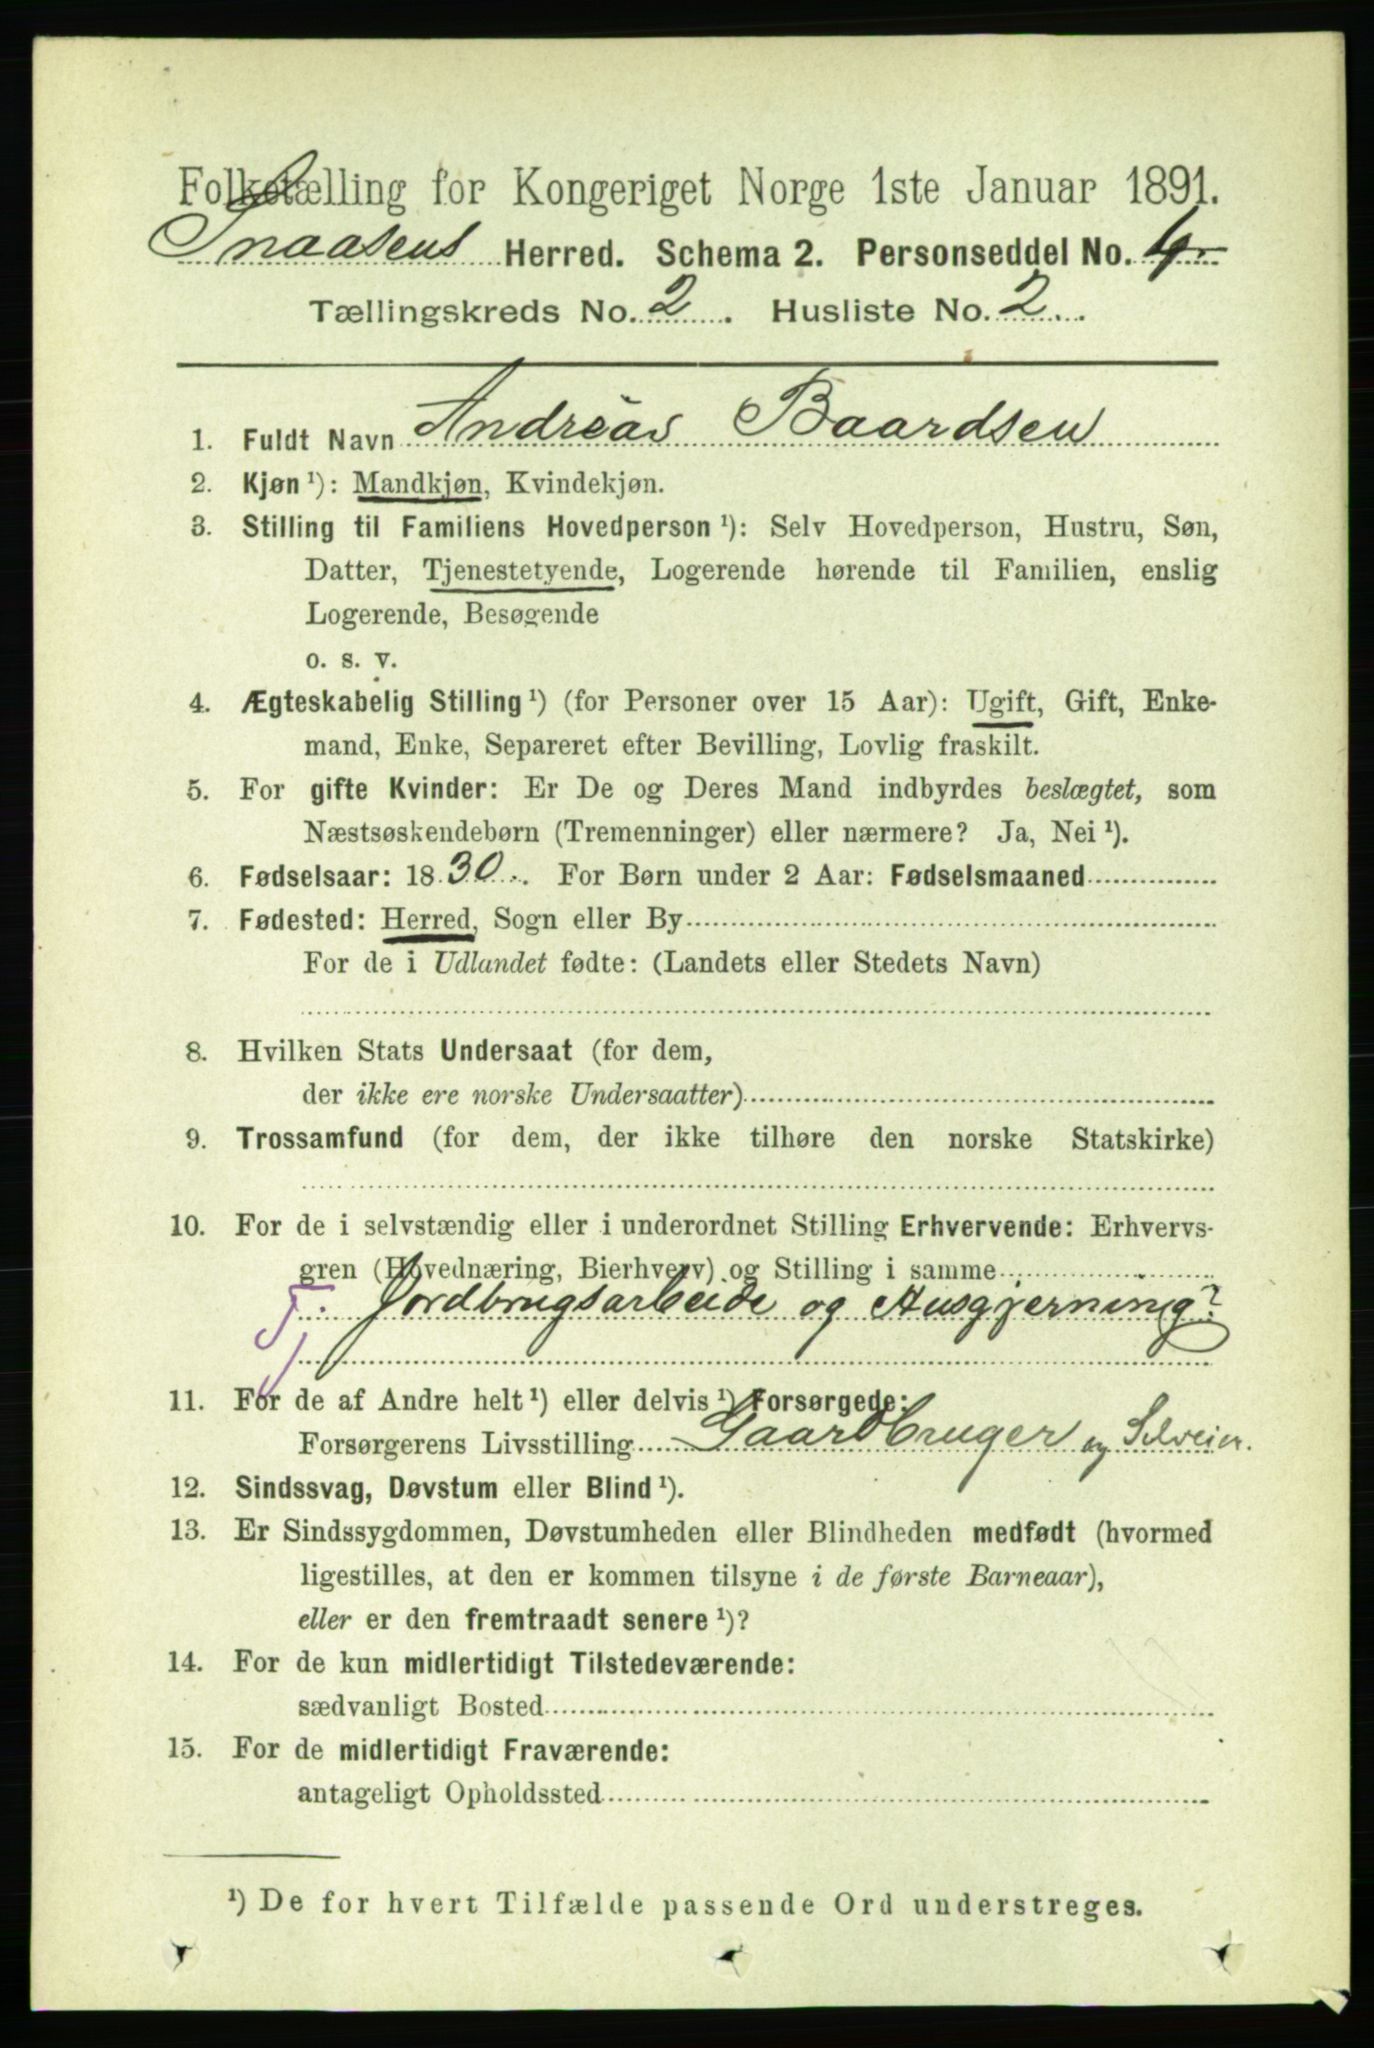 Folketælling for Kongeriget Norge 1ste Januar 1891.
Snaasens Herred. Schema 2. Personseddel No. 4
Tællingskreds No. 2. Husliste No. 2.
1. Fuldt Navn Andreas Baardsen
2. Kjøn¹): Mandkjøn, Kvindekjøn.
3. Stilling til Familiens Hovedperson¹): Selv Hovedperson, Hustru, Søn,
Datter, Tjenestetyende, Logerende hørende til Familien, enslig
Logerende, Besøgende
o. s. v.
4. Ægteskabelig Stilling¹) (for Personer over 15 Aar): Ugift, Gift, Enke-
mand, Enke, Separeret efter Bevilling, Lovlig fraskilt.
5. For gifte Kvinder: Er De og Deres Mand indbyrdes beslægtet, som
Næstsøskendebørn (Tremenninger) eller nærmere? Ja, Nei¹).
6. Fødselsaar: 1830. For Børn under 2 Aar: Fødselsmaaned
7. Fødested: Herred, Sogn eller By
For de i Udlandet fødte: (Landets eller Stedets Navn)
8. Hvilken Stats Undersaat (for dem,
der ikke ere norske Undersaatter)
9. Trossamfund (for dem, der ikke tilhøre den norske Statskirke)
10. For de i selvstændig eller i underordnet Stilling Erhvervende: Erhvervs-
gren (Hovednæring, Bierhverv) og Stilling i samme
Jordbrugsarbeide og Husgjerning
11. For de af Andre helt¹) eller delvis¹) Forsørgede:
Forsørgerens Livsstilling Gaardbruger og Selveier.
12. Sindssvag, Døvstum eller Blind¹).
13. Er Sindssygdommen, Døvstumheden eller Blindheden medfødt (hvormed
ligestilles, at den er kommen tilsyne i de første Barneaar),
eller er den fremtraadt senere¹)?
14. For de kun midlertidigt Tilstedeværende:
sædvanligt Bosted
15. For de midlertidigt Fraværende:
antageligt Opholdssted
¹) De for hvert Tilfælde passende Ord understreges.